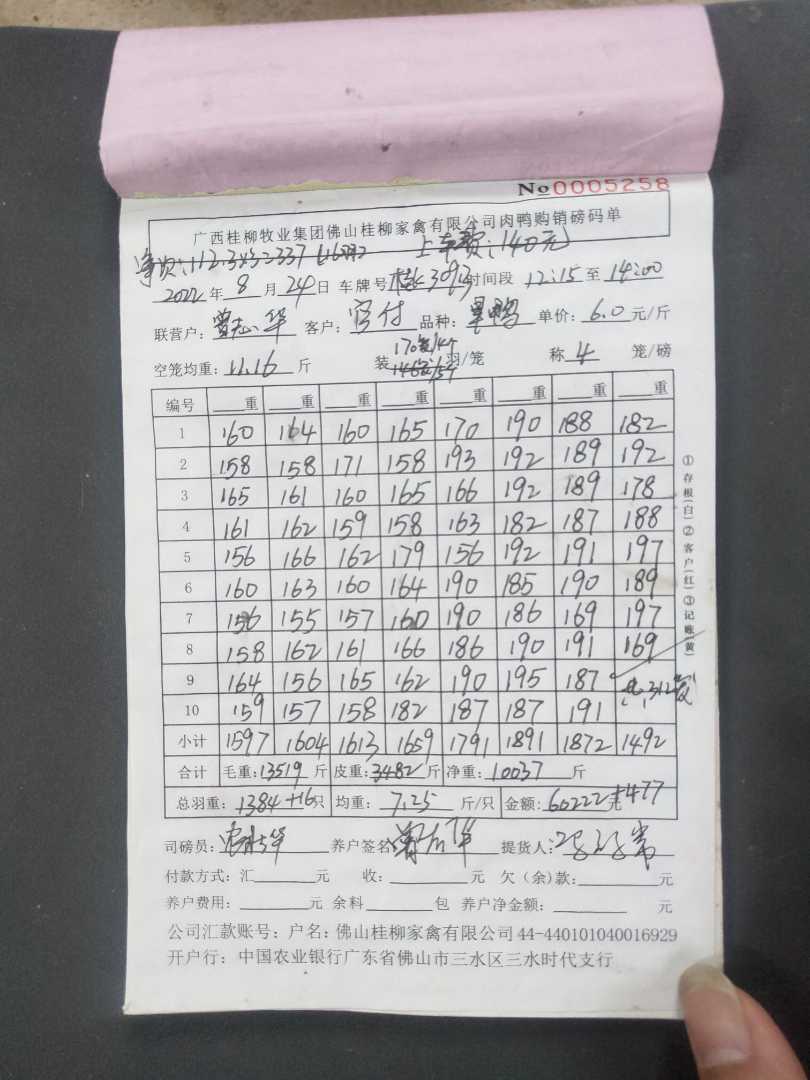 No 0005258
广西桂柳牧业集团佛山桂柳家禽有限公司肉鸭购销磅码单
上车费:140元
2022年8月24日 车牌号 3093 时间段 12:15 至 14:00
联营户: 华 客户: 官付 品种: 鸭 单价: 6.0 元/斤
空笼均重: 11.16 斤 装 羽/笼 称 4 笼/磅
编号 重 重 重 重 重 重 重 重
1 160 164 160 165 170 190 188 182
2 158 158 171 158 193 192 189 192
3 165 161 160 165 166 192 189 178
4 161 162 159 158 163 182 187 188
5 156 166 162 179 156 192 191 197
6 160 163 160 164 190 185 190 189
7 156 155 157 160 190 186 169 197
8 158 162 161 166 186 190 191 169
9 164 156 165 162 190 195 187 共312笼
10 159 157 158 182 187 187 191
小计 1597 1604 1613 1659 1791 1891 1872 1492
合计 毛重: 13519 斤 皮重: 3482 斤 净重: 10037 斤
总羽重: 1384+16 只 均重: 7.25 斤/只 金额: 60222 元 +477
司磅员: 养户签名: 提货人:
付款方式: 汇 元 收: 元 欠(余)款: 元
养户费用: 元 余料 包 养户净金额: 元
公司汇款账号: 户名: 佛山桂柳家禽有限公司 44-440101040016929
开户行: 中国农业银行广东省佛山市三水区三水时代支行
①存根(白)②客户(红)③记账(黄)